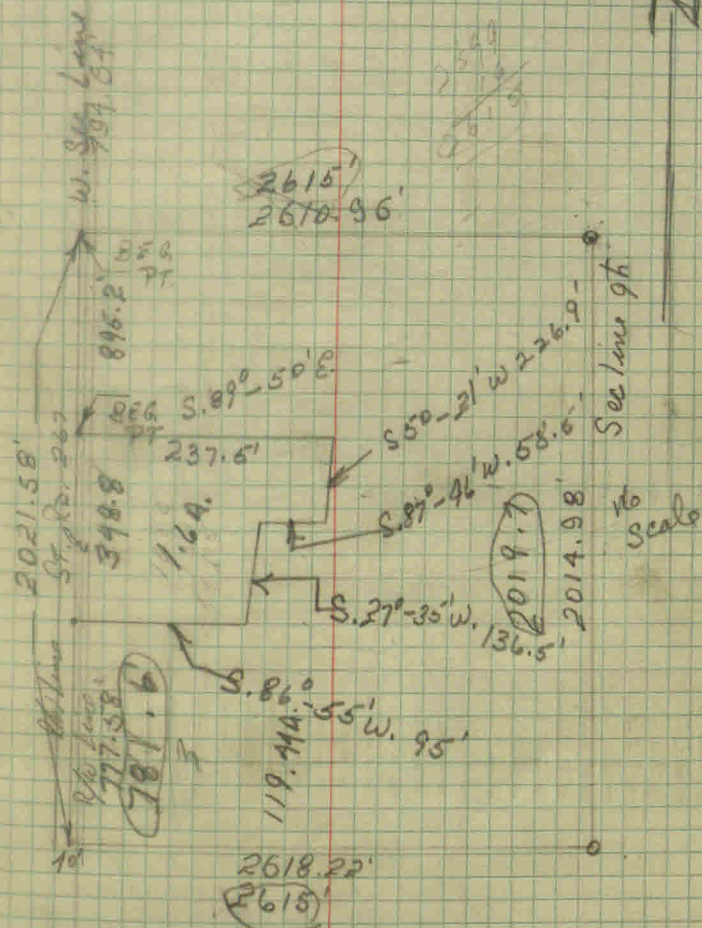 W. Sec Line
794.54'
2615'
2610.96'
BEG
PT.
896.2'
BEG
PT
S.89°-50'E.
237.5'
2021.58'
St. Rd. 267
398.8
1.6A.
S5°-21'W 226.9-
S.87°-46'W. 58.5-
S.27°-35'W. 136.5'
S.86°-55'W. 95'
2019.7
2014.98'
Sec line
No
Scale
R/W Line
777.58'
781.6
119.44A.
10'
2618.22'
2615'